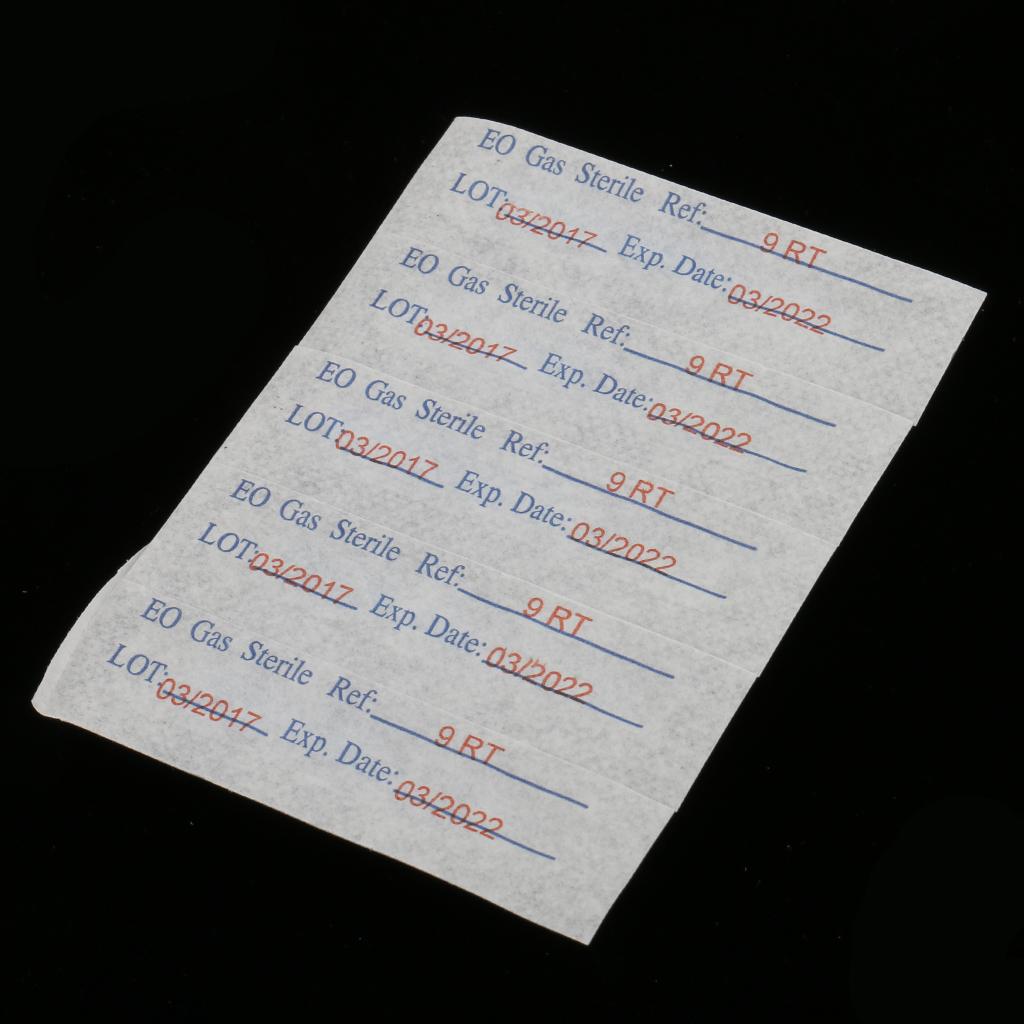 EO Gas Sterile Ref: 9 RT
LOT: 03/2017 Exp. Date: 03/2022
EO Gas Sterile Ref: 9 RT
LOT: 03/2017 Exp. Date: 03/2022
EO Gas Sterile Ref: 9 RT
LOT: 03/2017 Exp. Date: 03/2022
EO Gas Sterile Ref: 9 RT
LOT: 03/2017 Exp. Date: 03/2022
EO Gas Sterile Ref: 9 RT
LOT: 03/2017 Exp. Date: 03/2022